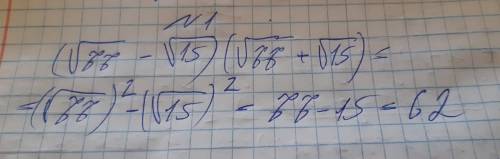 №1
(√77 - √15)(√77 + √15) =
= (√77)² - (√15)² = 77 - 15 = 62